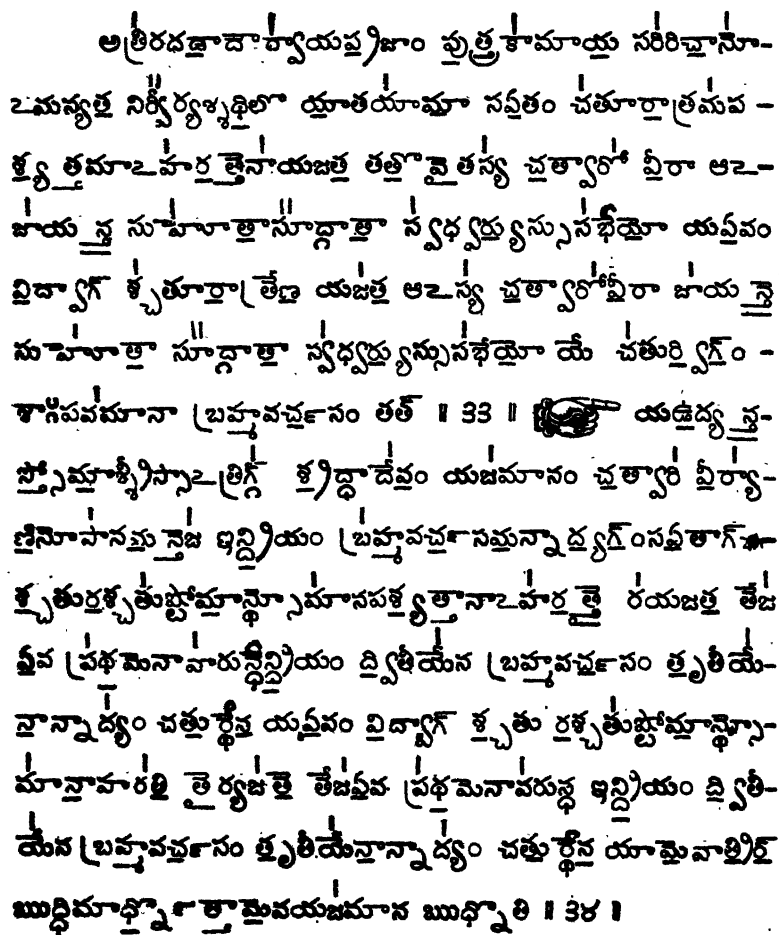 అత్రిరదదాదౌర్వాయప్రజాం పుత్త్రకామాయ సరిరిచానో-
ఽమన్యత నిర్వీర్యశ్శిథిలో యాతయామా సఏతం చతూరాత్రమప-
శ్యత్తమాఽహరత్తేనాయజత తతోవైతస్య చత్వారో వీరా ఆఽ-
జాయన్త సుహోతాసూద్గాతా స్వధ్వర్యుస్సుసభేయో యఏవం
విద్వాగ్ శ్చతూరాత్రేణ యజత ఆఽస్య చత్వారోవీరా జాయన్తే
సుహోతా సూద్గాతా స్వధ్వర్యుస్సుసభేయో యే చతుర్విగ్ం-
శాఃపవమానా బ్రహ్మవర్చసం తత్ ॥ ౩౩ ॥ యఉద్యన్త-
స్స్తోమాశ్శ్రీస్సాఽత్రిగ్గ్ శ్రద్ధాదేవం యజమానం చత్వారి వీర్యా-
ణినోపానమన్తేజ ఇన్ద్రియం బ్రహ్మవర్చసమన్నాద్యగ్ంసఏతాగ్-
శ్చతురశ్చతుష్టోమాన్థ్సోమానపశ్యత్తానాఽహరత్తై రయజత తేజ
ఏవ ప్రథమేనావారున్ధేన్ద్రియం ద్వితీయేన బ్రహ్మవర్చసం తృతీయే-
నాన్నాద్యం చతుర్థేన యఏవం విద్వాగ్ శ్చతు రశ్చతుష్టోమాన్థ్సో-
మానాహరతి తైర్యజతే తేజఏవ ప్రథమేనావరున్ధ ఇన్ద్రియం ద్వితీ-
యేన బ్రహ్మవర్చసం తృతీయేనాన్నాద్యం చతుర్థేన యామేవాత్రిర్
ఋద్ధిమార్ధ్నోత్తామేవయజమాన ఋధ్నోతి ॥ ౩౪ ॥